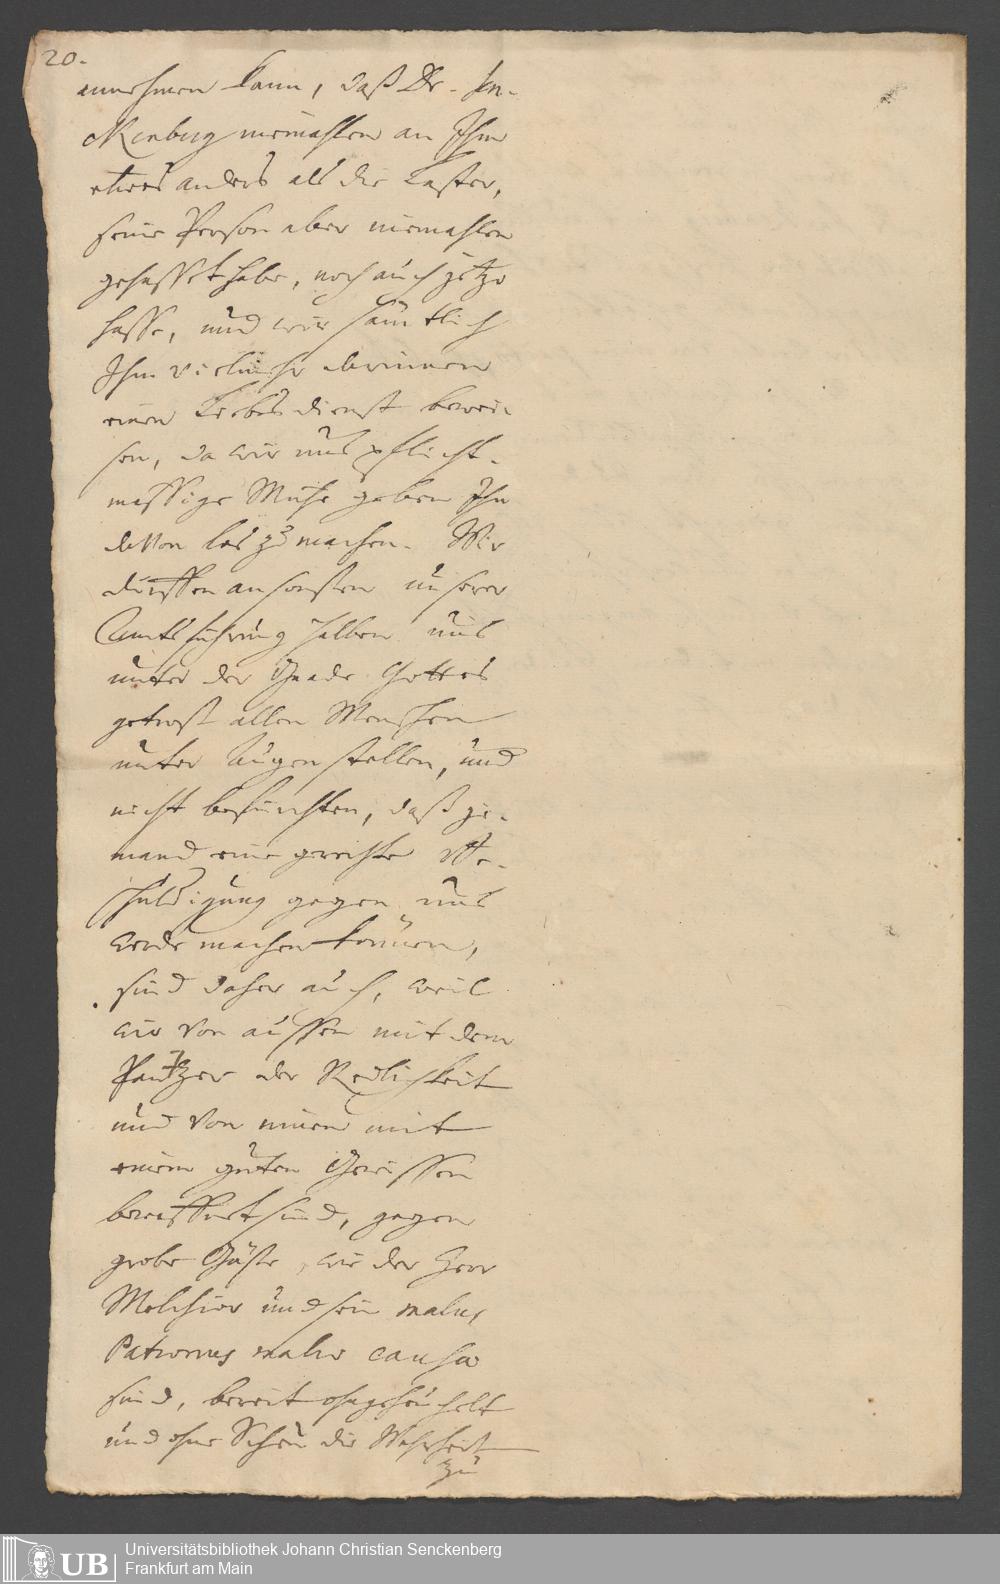 20.
annehmen kann, daß Dr. Sen-
ckenberg niemahlen an Ihm
etwas anders als die Laster,
seine Person aber niemahlen
gehasset habe, noch auch jetzo
hasse, und wir sämtlich
Ihm vielmehr darinnen
einen Liebesdienst bewei-
sen, da wir uns pflicht-
mässige Mühe geben Ihn
davon los zu machen. Wir
dürffen ansonsten unserer
Amtsführung halben uns
unter der Gnade Gottes
getrost allen Menschen
unter Augen stellen, und
nicht befürchten, daß je-
mand eine gerechte Be-
schuldigung gegen uns
werde machen können,
sind daher auch, weil
wir von aussen mit dem
Pantzer der Redlichkeit
und von innen mit
einem guten Gewissen
bewaffnet sind, gegen
grobe Gäste, wie der Herr
Melchior und sein malus
Patronus malae causae
sind, bereit ohngeheuchelt
und ohne Scheu die Wahrheit
zu
Universitätsbibliothek Johann Christian Senckenberg
Frankfurt am Main
UB